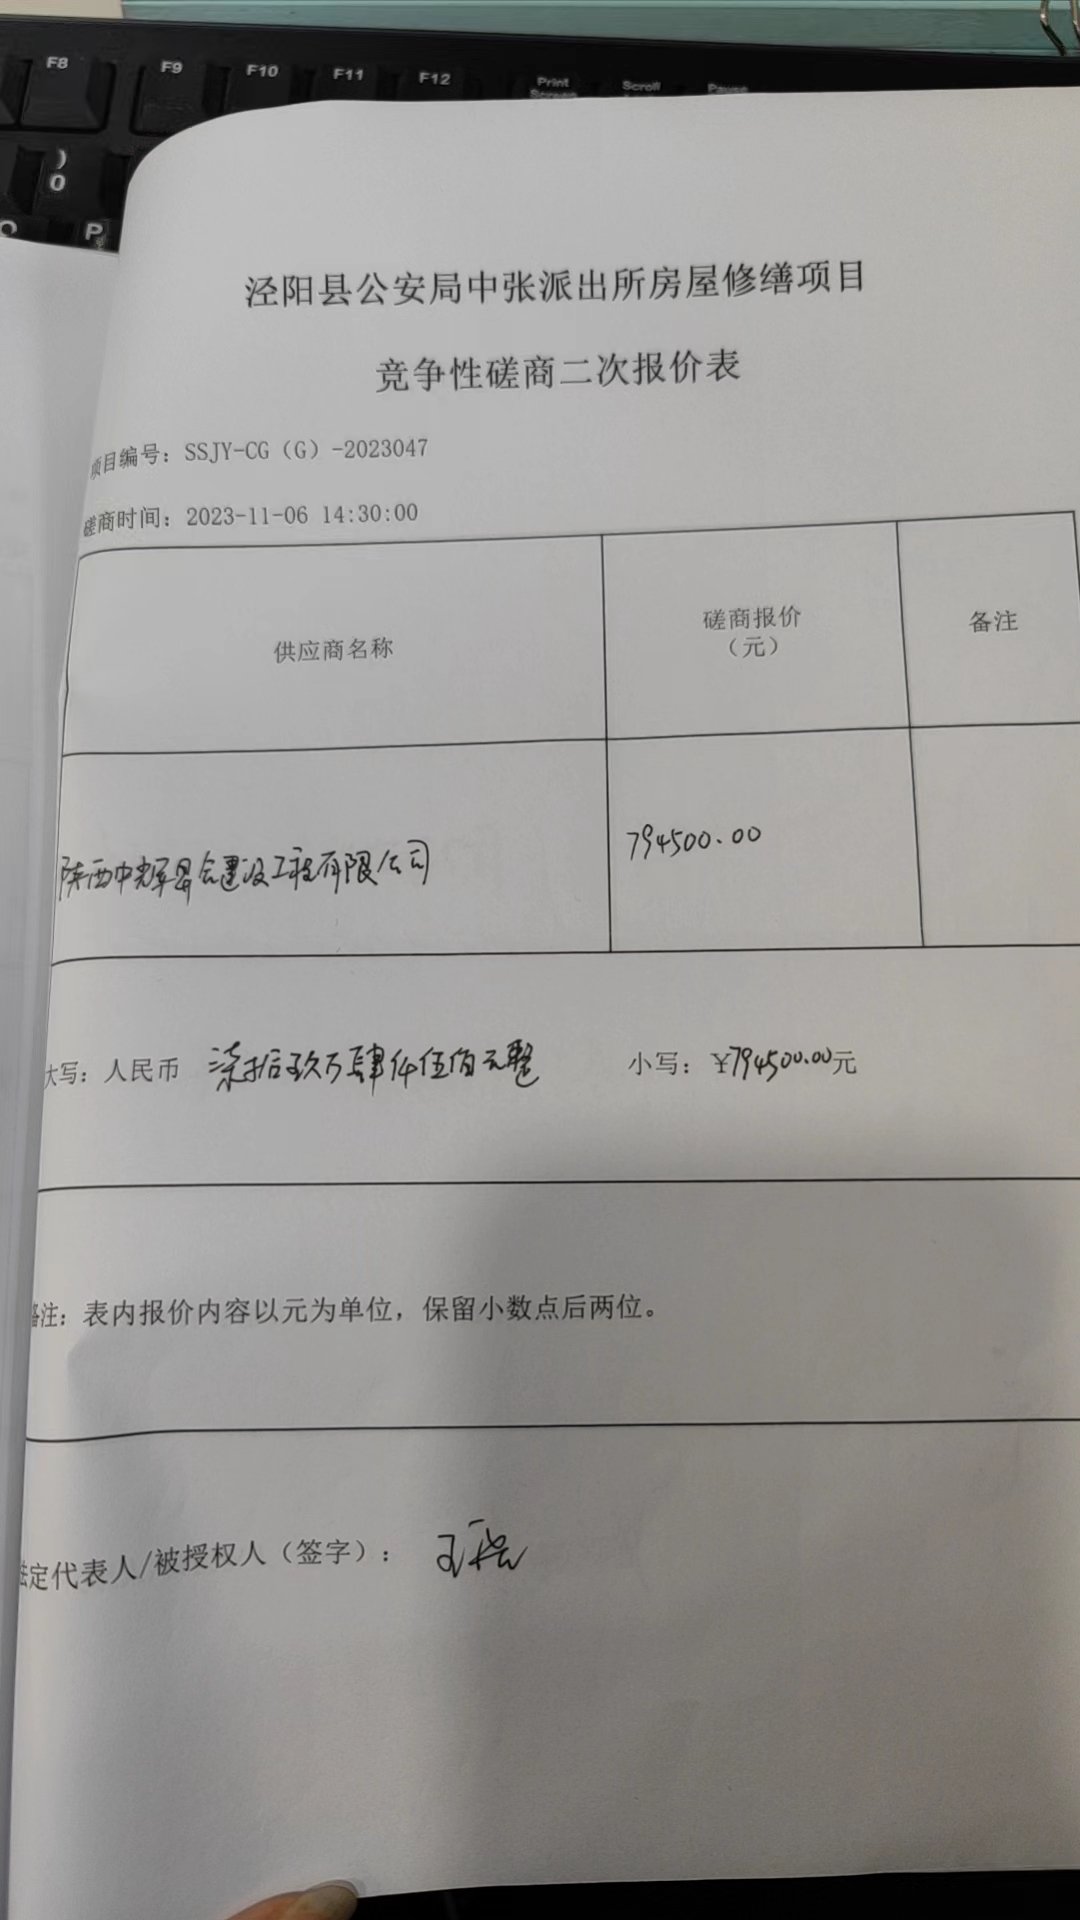 F8 F9 F10 F11 F12 Print Screen Scroll Pause
)
0
O P
泾阳县公安局中张派出所房屋修缮项目
竞争性磋商二次报价表
项目编号：SSJY-CG（G）-2023047
磋商时间：2023-11-06 14:30:00
供应商名称
磋商报价
（元）
备注
陕西中辉昂合建设工程有限公司
794500.00
大写：人民币 柒拾玖万肆仟伍佰元整 小写：¥794500.00元
备注：表内报价内容以元为单位，保留小数点后两位。
法定代表人/被授权人（签字）：